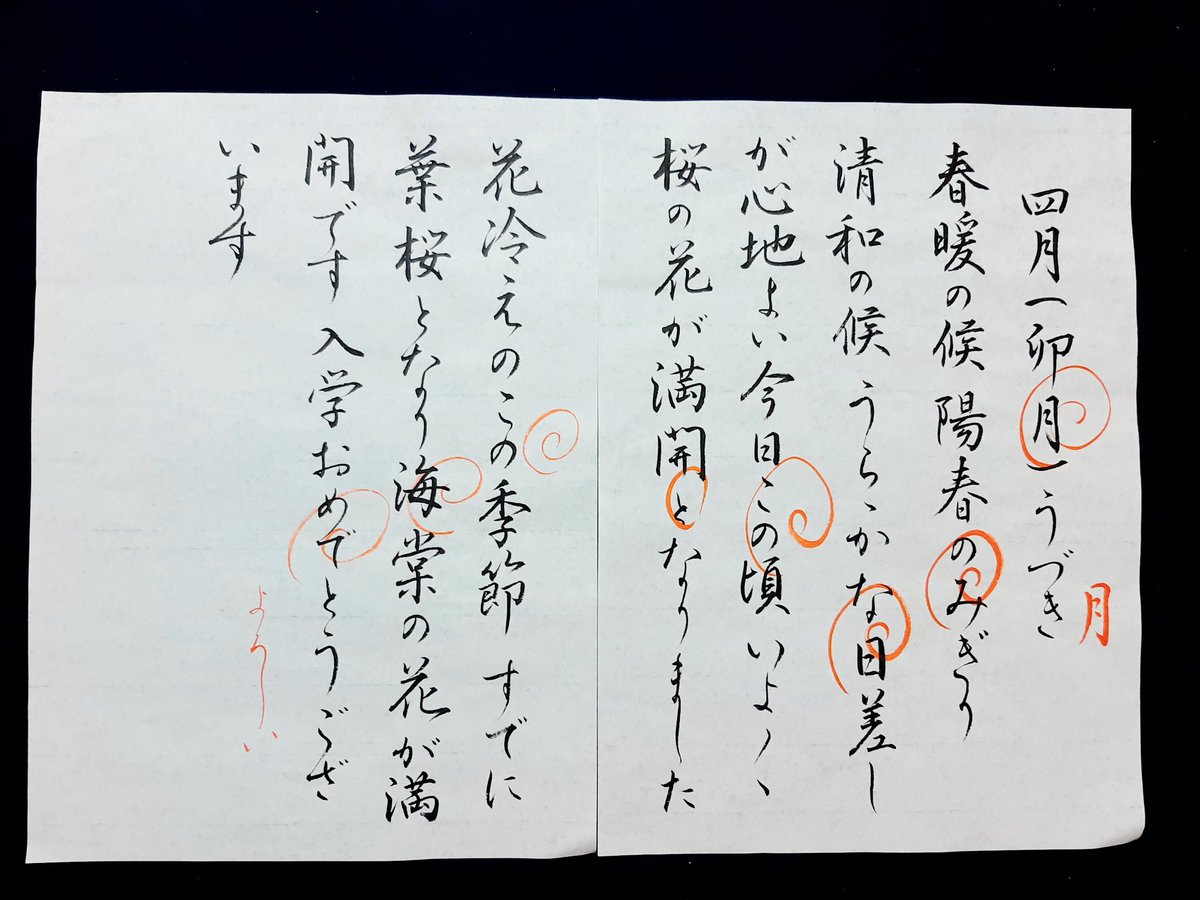 四月(卯月)うづき
月
春暖の候 陽春のみぎり
清和の候 うらゝかな日差し
が心地よい今日この頃 いよ〳〵
桜の花が満開となりました
花冷えのこの季節 すでに
葉桜となり海棠の花が満
開です 入学おめでとうござ
います
よろしい